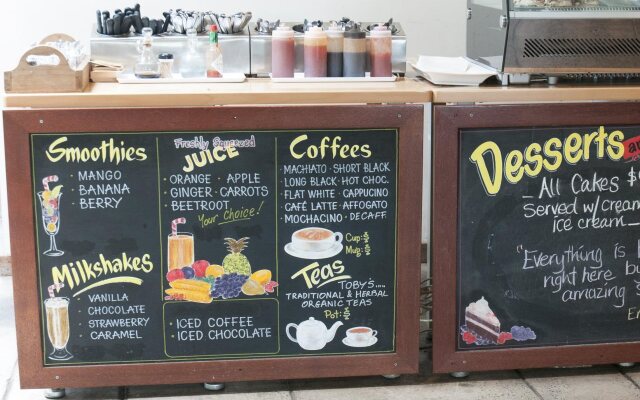 Smoothies
· MANGO
· BANANA
· BERRY
Milkshakes
· VANILLA
· CHOCOLATE
· STRAWBERRY
· CARAMEL
Freshly Squeezed
JUICE
· ORANGE · APPLE
· GINGER · CARROTS
· BEETROOT
Your Choice!
· ICED COFFEE
· ICED CHOCOLATE
Coffees
MACHIATO · SHORT BLACK
LONG BLACK · HOT CHOC.
FLAT WHITE · CAPPUCINO
CAFÉ LATTE · AFFOGATO
MOCHACINO · DECAFF.
Cup: $
Mug: $
Teas
TOBYS....
TRADITIONAL & HERBAL
ORGANIC TEAS
Pot: $
Desserts
All Cakes $
Served w/ cream
ice cream
"Everything is
right here
amazing